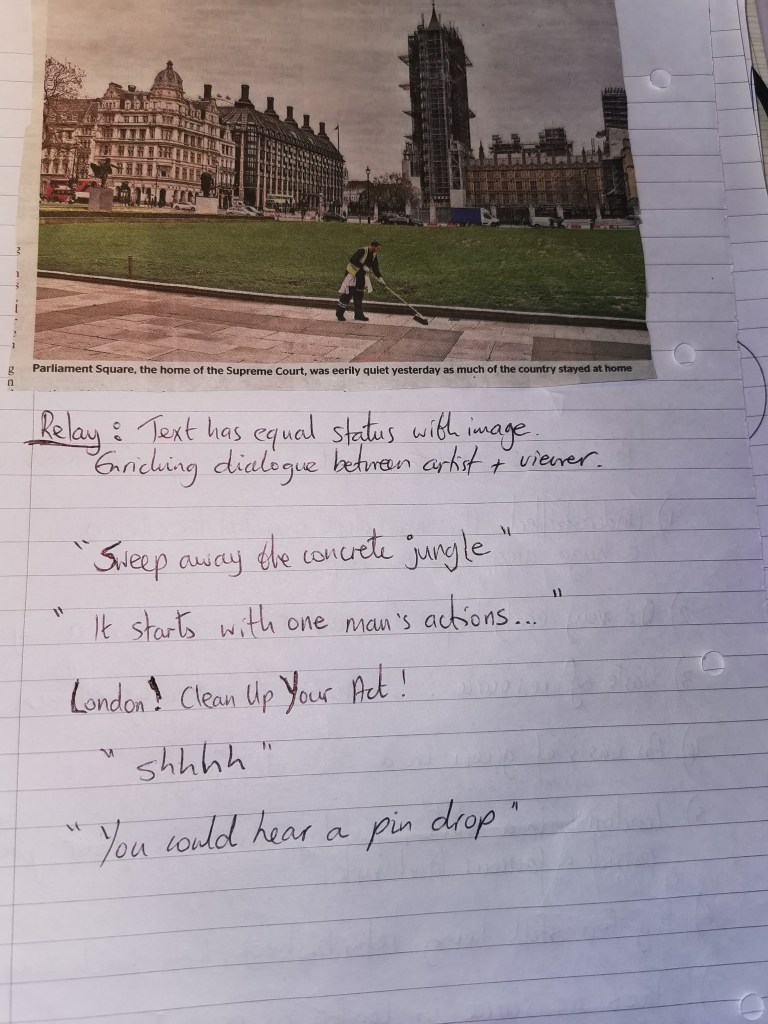 Parliament Square, the home of the Supreme Court, was eerily quiet yesterday as much of the country stayed at home
Relay : Text has equal status with image.
Enriching dialogue between artist + viewer.
"Sweep away the concrete jungle"
"It starts with one man's actions..."
London! Clean Up Your Act!
"shhhh"
"You could hear a pin drop"